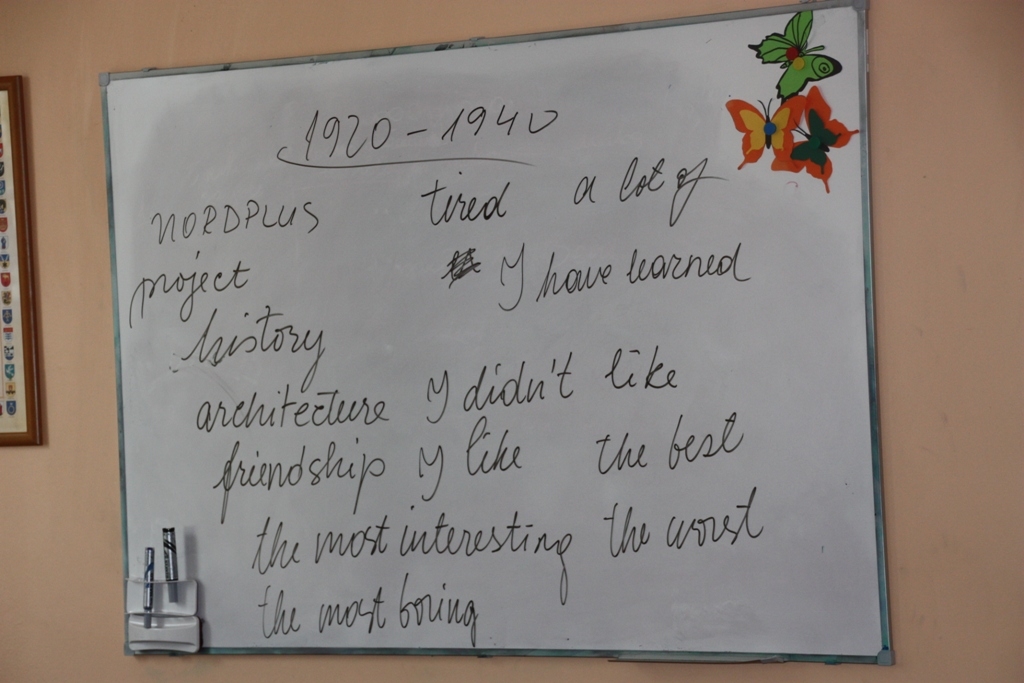 1920 - 1940
NORDPLUS tired a lot of
project I have learned
history
architecture I didn't like
friendship I like the best
the most interesting the worst
the most boring